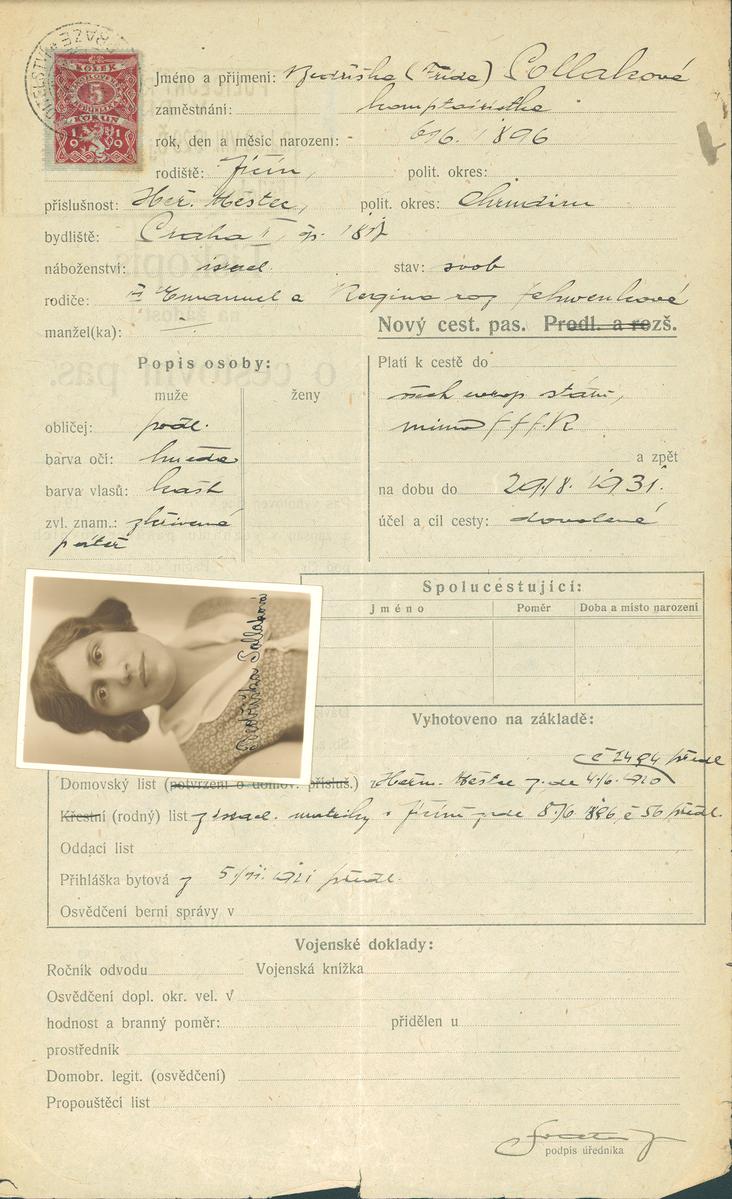 KOLEK
5
KORUN
1919
Jméno a přijmení: Bedřiška (Frída) Pollaková
zaměstnání: kontoristka
rok, den a měsíc narození: 6/6. 1896
rodiště: Jičín, polit. okres:
příslušnost: Heř. Městec, polit. okres: Chrudim
bydliště: Praha čp.
náboženství: israel. stav: svob
rodiče: Emanuel a Regina roz Schwenková
manžel(ka):
Nový cest. pas. Prodl. a rozš.
Popis osoby:
muže ženy
obličej: podl.
barva očí: hnědá
barva vlasů: kašt
zvl. znam.: zkřivená
páteř
Platí k cestě do
všech evrop států,
mimo SSSR
a zpět
na dobu do 29./8. 1931.
účel a cíl cesty: dovolená
Bedřiška Pollaková
Spolucestující:
Jméno Poměr Doba a místo narození
Vyhotoveno na základě:
č 2494 předl
Domovský list (potvrzení o domov. přísluš.) Heřm. Městec z de 4./6. 1920
Křestní (rodný) list z israel. matriky v Jičíně z de 8./6. 896 č 56 předl.
Oddací list
Přihláška bytová z 5./11. 1921 předl.
Osvědčení berní správy v
Vojenské doklady:
Ročník odvodu Vojenská knížka
Osvědčení dopl. okr. vel. v
hodnost a branný poměr: přidělen u
prostředník
Domobr. legit. (osvědčení)
Propouštěcí list
podpis úředníka